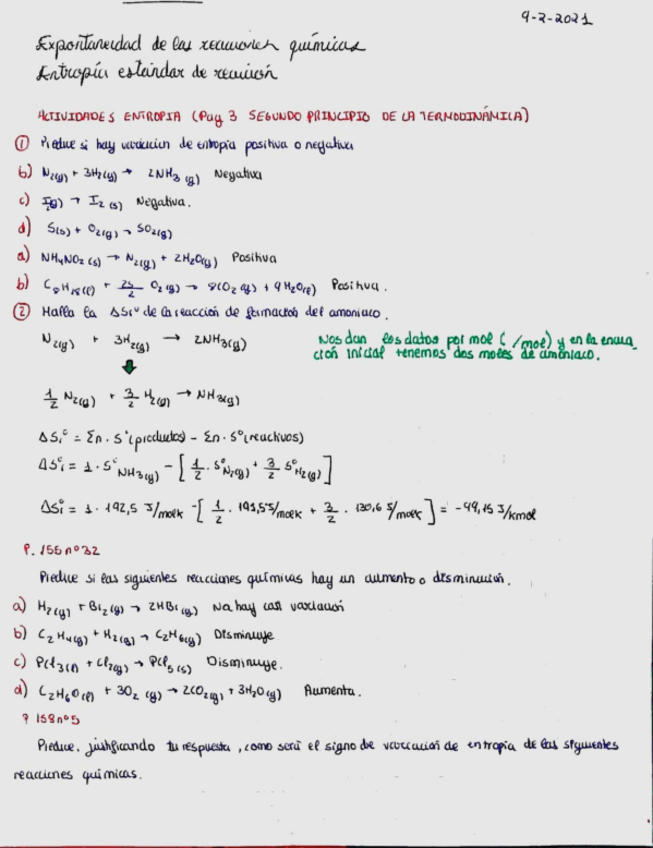 9-2-2021
Expontaneidad de las reacciones químicas
Entropía estándar de reacción
ACTIVIDADES ENTROPIA (Pag 3 SEGUNDO PRINCIPIO DE LA TERMODINÁMICA)
① Predice si hay variación de entropía positiva o negativa
b) N₂(g) + 3H₂(g) → 2NH₃(g) Negativa
c) I(g) → I₂(s) Negativa.
d) S(s) + O₂(g) → SO₂(g)
a) NH₄NO₂(s) → N₂(g) + 2H₂O(g) Positiva
b) C₈H₁₈(l) + 25/2 O₂(g) → 8CO₂(g) + 9H₂O(l) Positiva.
② Halla la ΔSr° de la reacción de formación del amoniaco.
N₂(g) + 3H₂(g) → 2NH₃(g)
Nos dan los datos por mol ( /mol) y en la ecua_
ción inicial tenemos dos moles de amoniaco.
1/2 N₂(g) + 3/2 H₂(g) → NH₃(g)
ΔSr° = Σn · S°(productos) - Σn · S°(reactivos)
ΔSr° = 1 · S°NH₃(g) - [1/2 · S°N₂(g) + 3/2 S°H₂(g)]
ΔSr° = 1 · 192,5 J/molK - [1/2 · 191,5 J/molK + 3/2 · 130,6 J/molK] = -99,15 J/Kmol
P. 155 nº32
Predice si las siguientes reacciones químicas hay un aumento o disminución.
a) H₂(g) + Br₂(g) → 2HBr(g) No hay casi variación
b) C₂H₄(g) + H₂(g) → C₂H₆(g) Disminuye
c) PCl₃(l) + Cl₂(g) → PCl₅(s) Disminuye.
d) C₂H₆O(l) + 3O₂(g) → 2CO₂(g) + 3H₂O(g) Aumenta.
P 158 nº5
Predice, justificando tu respuesta, como será el signo de variación de entropía de las siguientes
reacciones químicas.